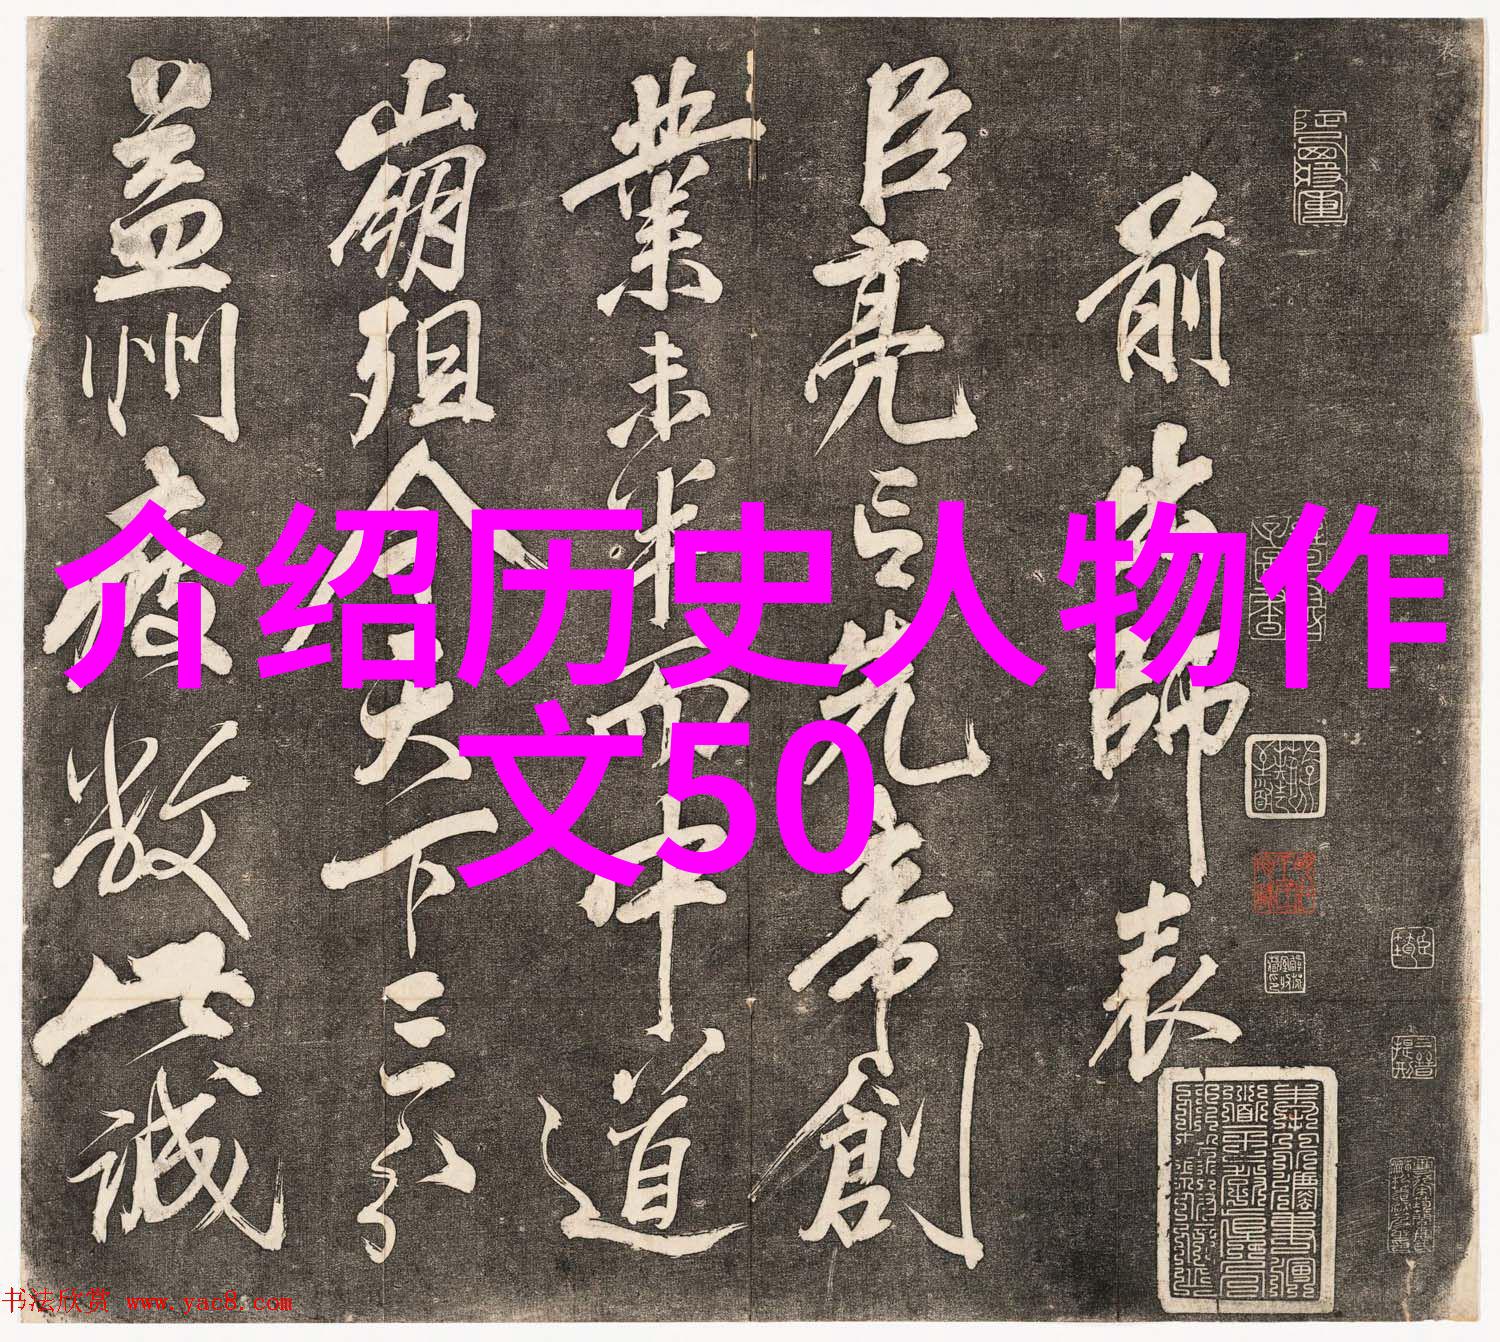 介绍历史人物作
文50
前出師表
臣亮言先帝創
業未半而中道
崩殂今天下三分
益州疲敝此誠
书法欣赏 www.yac8.com